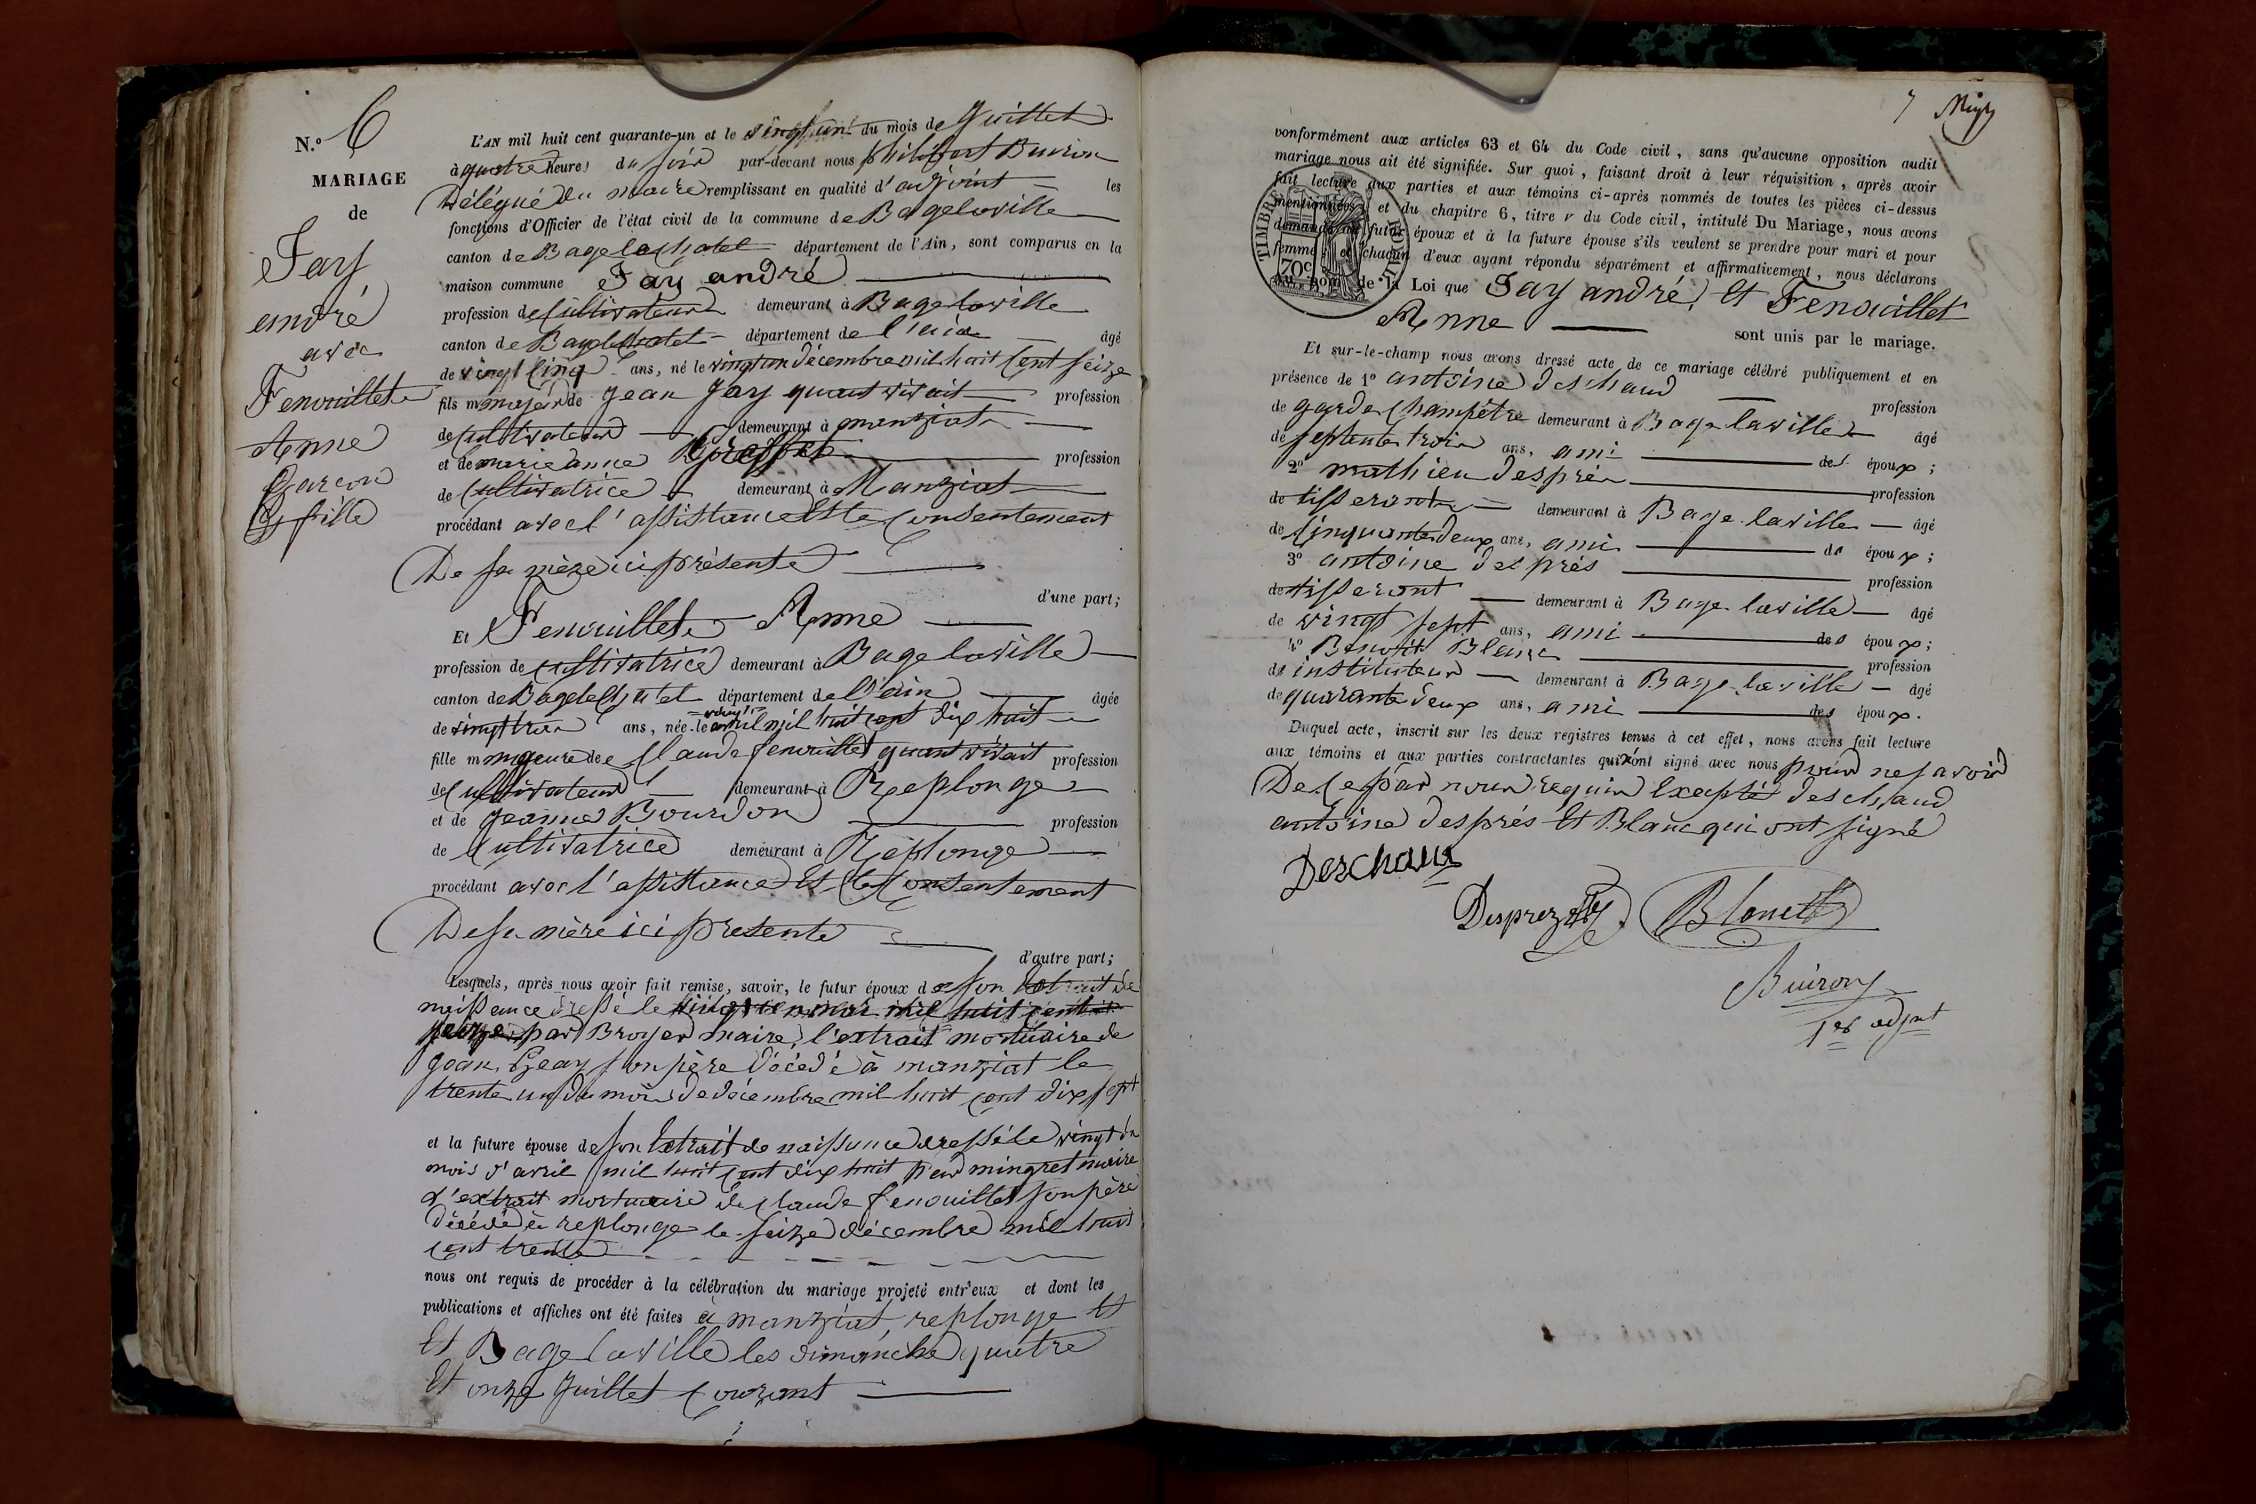 N.º 6
MARIAGE
de
Jay
andré
avec
Fenouillet
Anne
Garçon
& fille
L'AN mil huit cent quarante-un et le vingt un du mois de Juillet
à quatre heures du soir par-devant nous philibert Buiron
Délégué du maire remplissant en qualité d'adjoint les
fonctions d'Officier de l'état civil de la commune de Bagelaville
canton de Bagelechatel département de l'Ain, sont comparus en la
maison commune Jay andré
profession de Cultivateur demeurant à Bagelaville
canton de Bagelechatel département de l'ain âgé
de vingt cinq ans, né le vingt un décembre mil huit Cent Seize
fils majeur de Jean Jay quant vivait profession
de Cultivateur demeurant à manziat
et de marie anne profession
de Cultivatrice demeurant à Manziat
procédant avec l'assistance Et le Consentement
De sa mère ici présente
d'une part;
Et Fenouillet Anne
profession de Cultivatrice demeurant à Bagelaville
canton de Bagelechatel département de l'ain âgée
de vingt trois ans, née le vingt avril mil huit cent dix huit
fille majeure de Claude fenouillet quant vivait profession
de Cultivateur demeurant à Replonge
et de Jeanne Bourdon profession
de Cultivatrice demeurant à Replonge
procédant avec l'assistance Et le Consentement
De sa mère ici presente
d'autre part;
Lesquels, après nous avoir fait remise, savoir, le futur époux de son Extrait de
naissance dressé le mil huit cent
par Broyer maire, l'extrait mortuaire de
Jean Geay son père Décédé à manziat le
trente un du mois de décembre mil huit cent dix sept
et la future épouse de son Extrait de naissance dressé le vingt du
mois d'avril mil huit Cent dix huit par mingret maire
d'extrait mortuaire de Claude fenouillet son père
Décédé à replonge le Seize décembre mil huit
cent trente
nous ont requis de procéder à la célébration du mariage projeté entr'eux et dont les
publications et affiches ont été faites à manziat, replonge Et
Et Bagelaville les dimanche quatre
Et onze Juillet Courant
7
conformément aux articles 63 et 64 du Code civil, sans qu'aucune opposition audit
mariage nous ait été signifiée. Sur quoi, faisant droit à leur réquisition, après avoir
fait lecture aux parties et aux témoins ci-après nommés de toutes les pièces ci-dessus
mentionnées, et du chapitre 6, titre v du Code civil, intitulé Du Mariage, nous avons
demandé au futur époux et à la future épouse s'ils veulent se prendre pour mari et pour
femme; et chacun d'eux ayant répondu séparément et affirmativement, nous déclarons
au nom de la Loi que Jay andré Et Fenouillet
Anne sont unis par le mariage.
TIMBRE ROYAL
70c
Et sur-le-champ nous avons dressé acte de ce mariage célébré publiquement et en
présence de 1º antoine deschaud profession
de garde Champêtre demeurant à Bage laville âgé
de septente trois ans, ami des époux;
2º mathieu després profession
de tisserant demeurant à Bage laville âgé
de Cinquante deux ans, ami des époux;
3º antoine després profession
de tisserant demeurant à Bage laville âgé
de vingt sept ans, ami des époux;
4º Benoit Blanc profession
de instituteur demeurant à Bage laville âgé
de quarante deux ans, ami des époux.
Duquel acte, inscrit sur les deux registres tenus à cet effet, nous avons fait lecture
aux témoins et aux parties contractantes qui n'ont signé avec nous pour ne savoir
De Ce par nous requis Excepté deschaud
antoine després Et Blanc qui ont signé
Deschaux
Desprez
Blanc
Buiron
1er adjnt